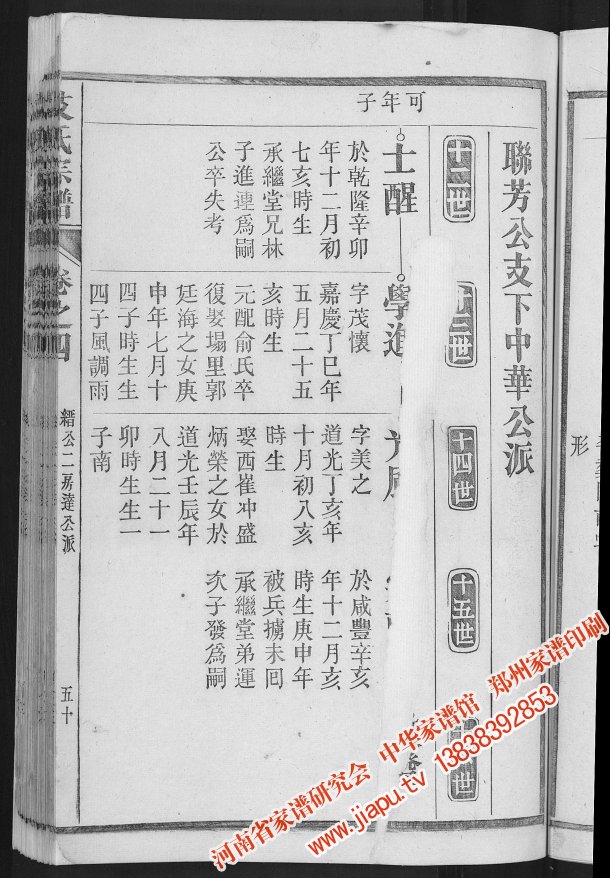 聯芳公支下中華公派
十二世
十三世
十四世
十五世
世
可年子
士醒
於乾隆辛卯
年十二月初
七亥時生
承繼堂兄林
子進連爲嗣
公卒失考
學進
字茂懷
嘉慶丁巳年
五月二十五
亥時生
元配俞氏卒
復娶塌里郭
廷海之女庚
申年七月十
四子時生生
四子風調雨
字美之
道光丁亥年
十月初八亥
時生
娶西崔冲盛
炳榮之女於
道光壬辰年
八月二十一
卯時生生一
子南
於咸豐辛亥
年十二月亥
時生庚申年
被兵擄未回
承繼堂弟運
次子發爲嗣
氏宗譜
卷之四
縉公二房達公派
五十
形
河南省家谱研究会 中华家谱馆 郑州家谱印刷
www.jiapu.tv 13838392853